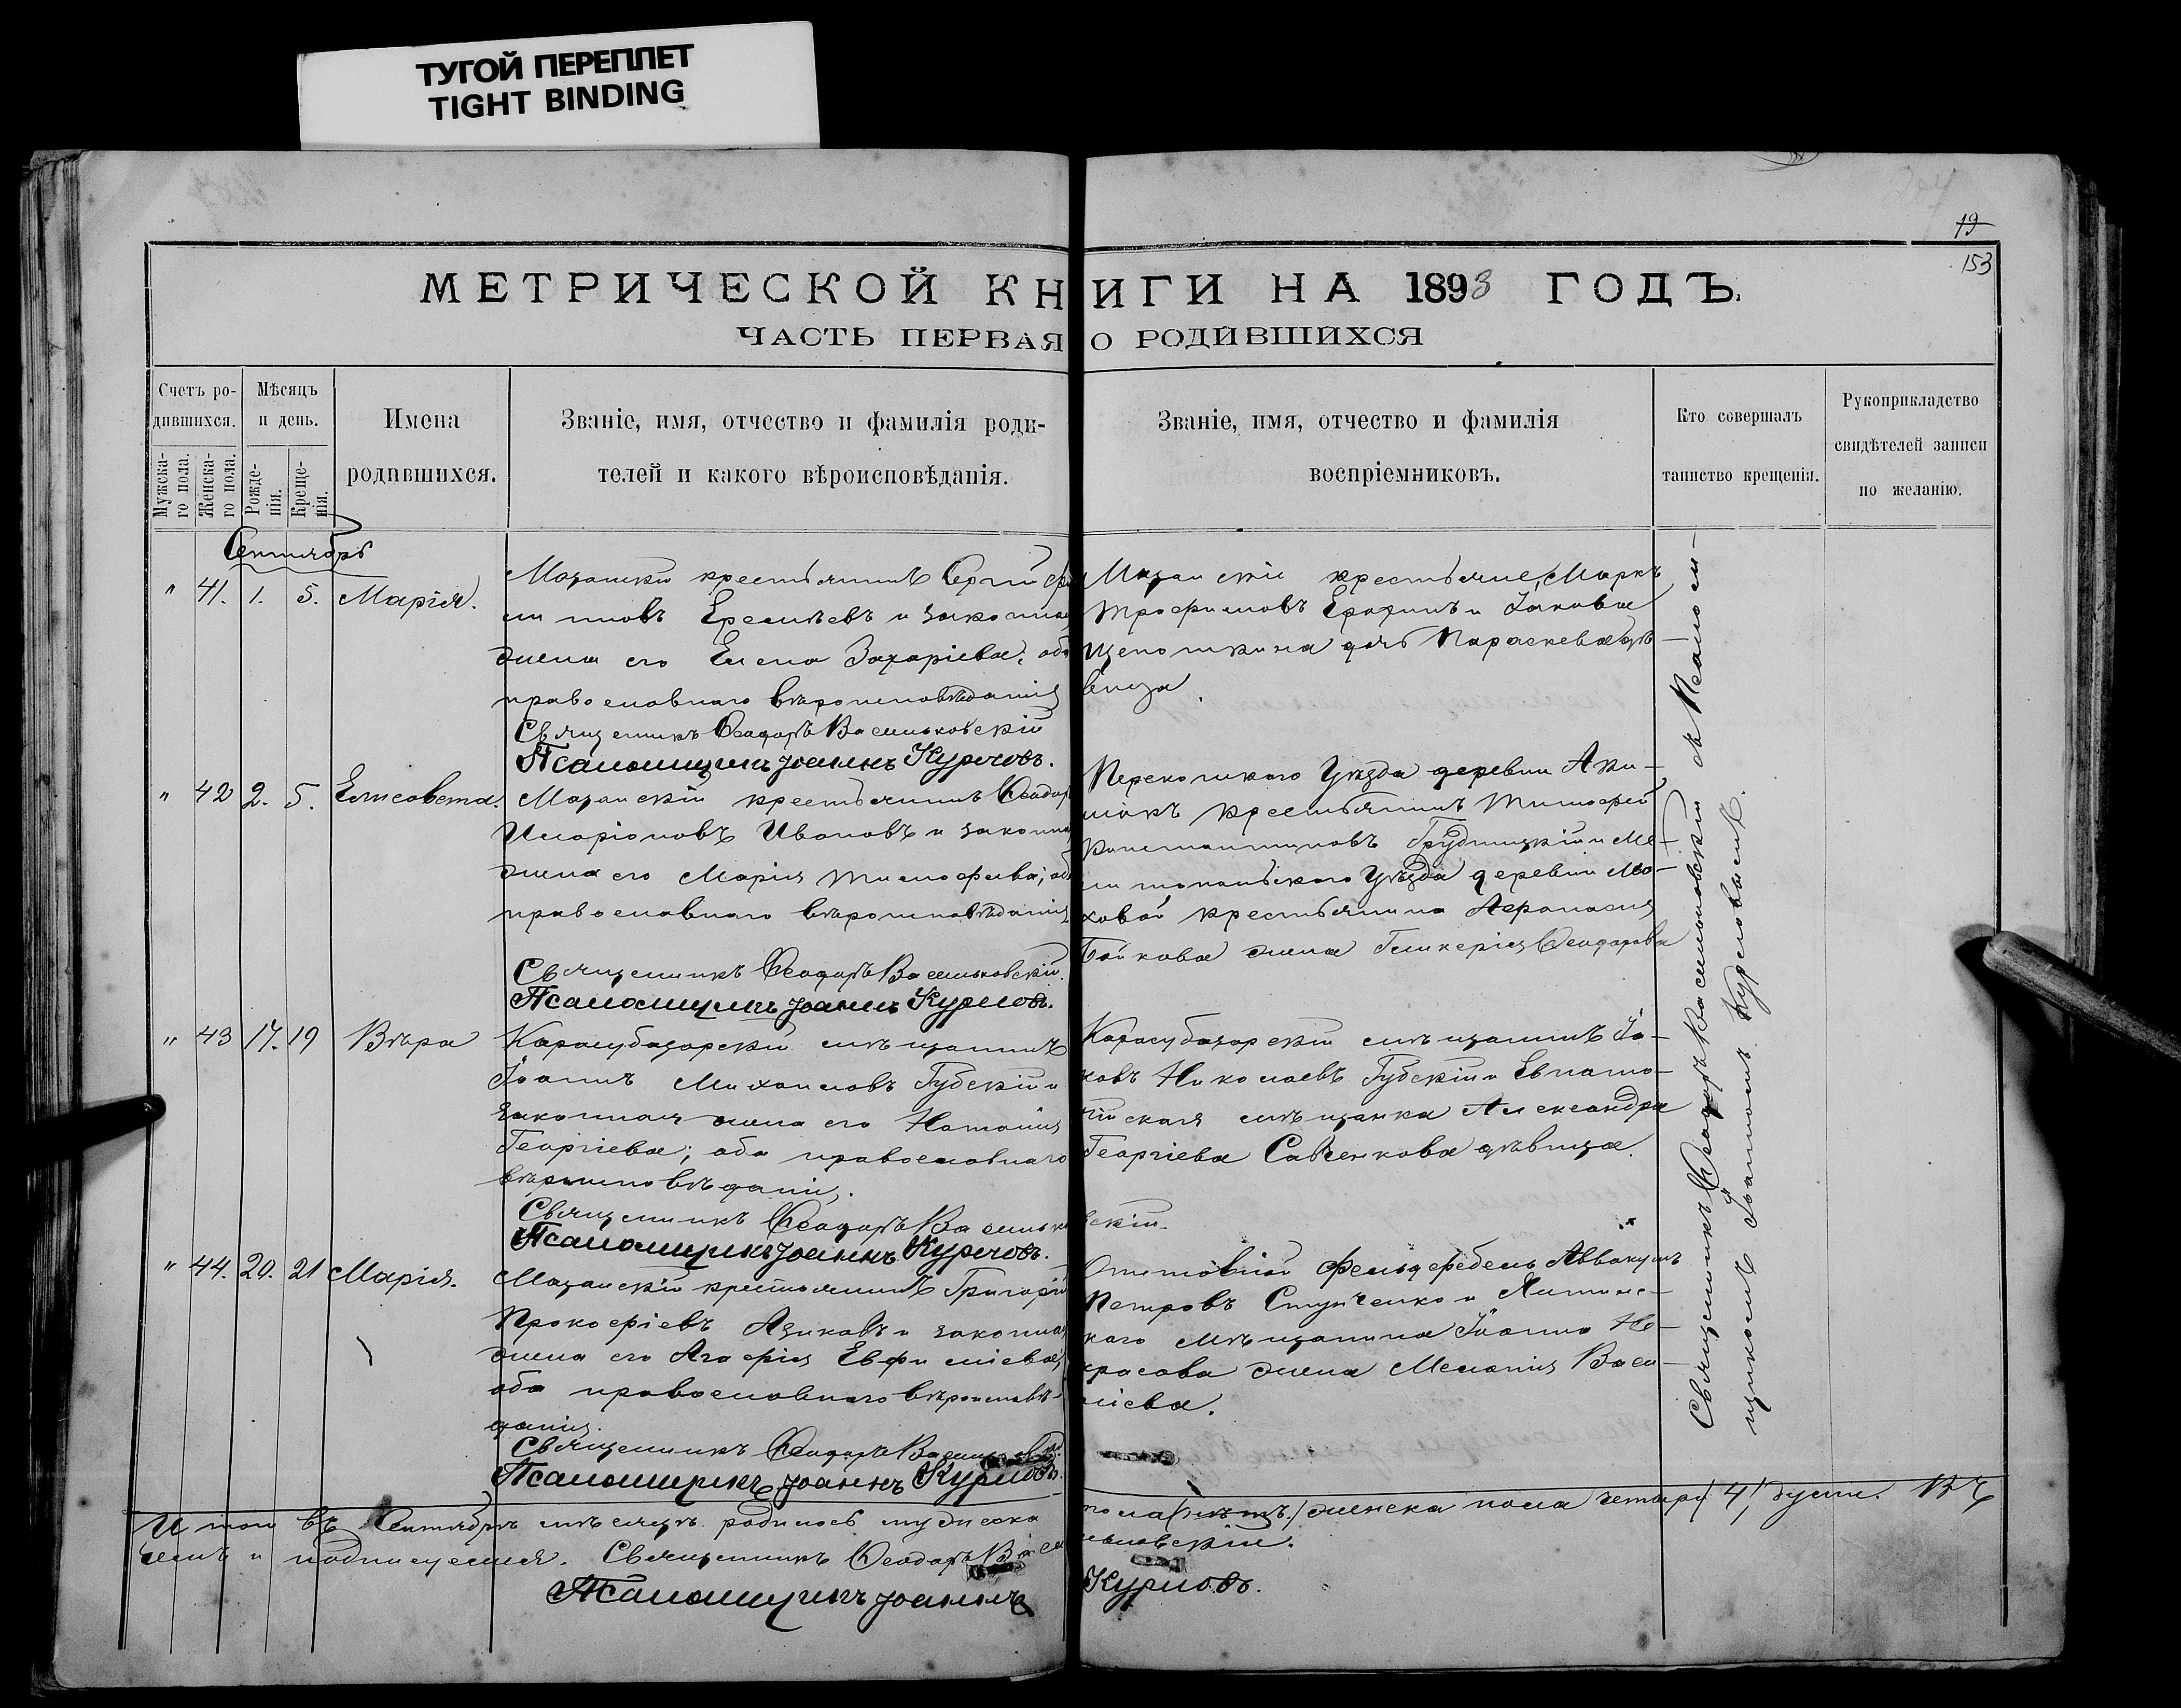 ТУГОЙ ПЕРЕПЛЕТ
TIGHT BINDING
19
153
МЕТРИЧЕСКОЙ КНИГИ НА 1893 ГОДЪ.
ЧАСТЬ ПЕРВАЯ О РОДИВШИХСЯ
Счетъ ро-
дившихся.
Мужска-
го пола.
Женска-
го пола.
Мѣсяцъ
и день.
Рожде-
нія.
Креще-
нія.
Имена
родившихся.
Званіе, имя, отчество и фамилія роди-
телей и какого вѣроисповѣданія.
Званіе, имя, отчество и фамилія
воспріемниковъ.
Кто совершалъ
таинство крещенія.
Рукоприкладство
свидѣтелей записи
по желанію.
Сентябрь
" 41. 1. 5. Марія.
Мазанскій крестьянинъ Сергій
Еремѣевъ и законная
жена его Елена Захаріева, оба
православнаго вѣроисповѣданія
Священникъ Ѳеодоръ Васильковскій
Псаломщикъ Іоаннъ Курловъ.
Мазанскіе крестьяне, Маркъ
Трофимовъ Ерохинъ и Іакова
Щепошкина дочь Параскева дѣ-
вица.
" 42 2. 5. Елисавета.
Мазанскій крестьянинъ Ѳеодоръ
Иларіоновъ Ивановъ и законная
жена его Марія Тимофеева; оба
православнаго вѣроисповѣданія
Священникъ Ѳеодоръ Васильковскій.
Псаломщикъ Іоаннъ Курловъ.
Перекопскаго Уѣзда деревни Аки-
крестьянинъ Тимофей
Константиновъ Грудницкій и Ме-
литопольскаго Уѣзда деревни Мо-
ховой крестьянина Афанасія
Бойкова жена Гликерія Ѳеодорова
" 43 17. 19 Вѣра
Карасубазарскій мѣщанинъ
Іоаннъ Михаиловъ Губскій и
законная жена его Наталія
Георгіева; оба православнаго
вѣроисповѣданія.
Священникъ Ѳеодоръ Васильковскій.
Псаломщикъ Іоаннъ Курловъ.
Карасубазарскій мѣщанинъ Іа-
ковъ Николаевъ Губскій и Евпато-
рійская мѣщанка Александра
Георгіева Савенкова дѣвица.
" 44. 20. 21 Марія.
Мазанскій крестьянинъ Григорій
Прокофіевъ Азиковъ и законная
жена его Агафія Евфиміева;
оба православнаго вѣроисповѣ-
данія.
Священникъ Ѳеодоръ
Псаломщикъ Іоаннъ Курловъ.
Фельдфебель Аввакумъ
Петровъ Ступченко и Ялтинс-
каго мѣщанина Іоанна Не-
красова жена Меланія Васи-
ліева.
Священникъ Ѳеодоръ Васильковскій съ Псалом-
щикомъ Іоанномъ Курловымъ.
Итого въ Сентябрѣ мѣсяцѣ родилось мужеска пола (нѣтъ.) женска пола четыре (4) души. Въ
чемъ и подписуемся. Священникъ Ѳеодоръ Васильковскій.
Псаломщикъ Іоаннъ Курловъ.